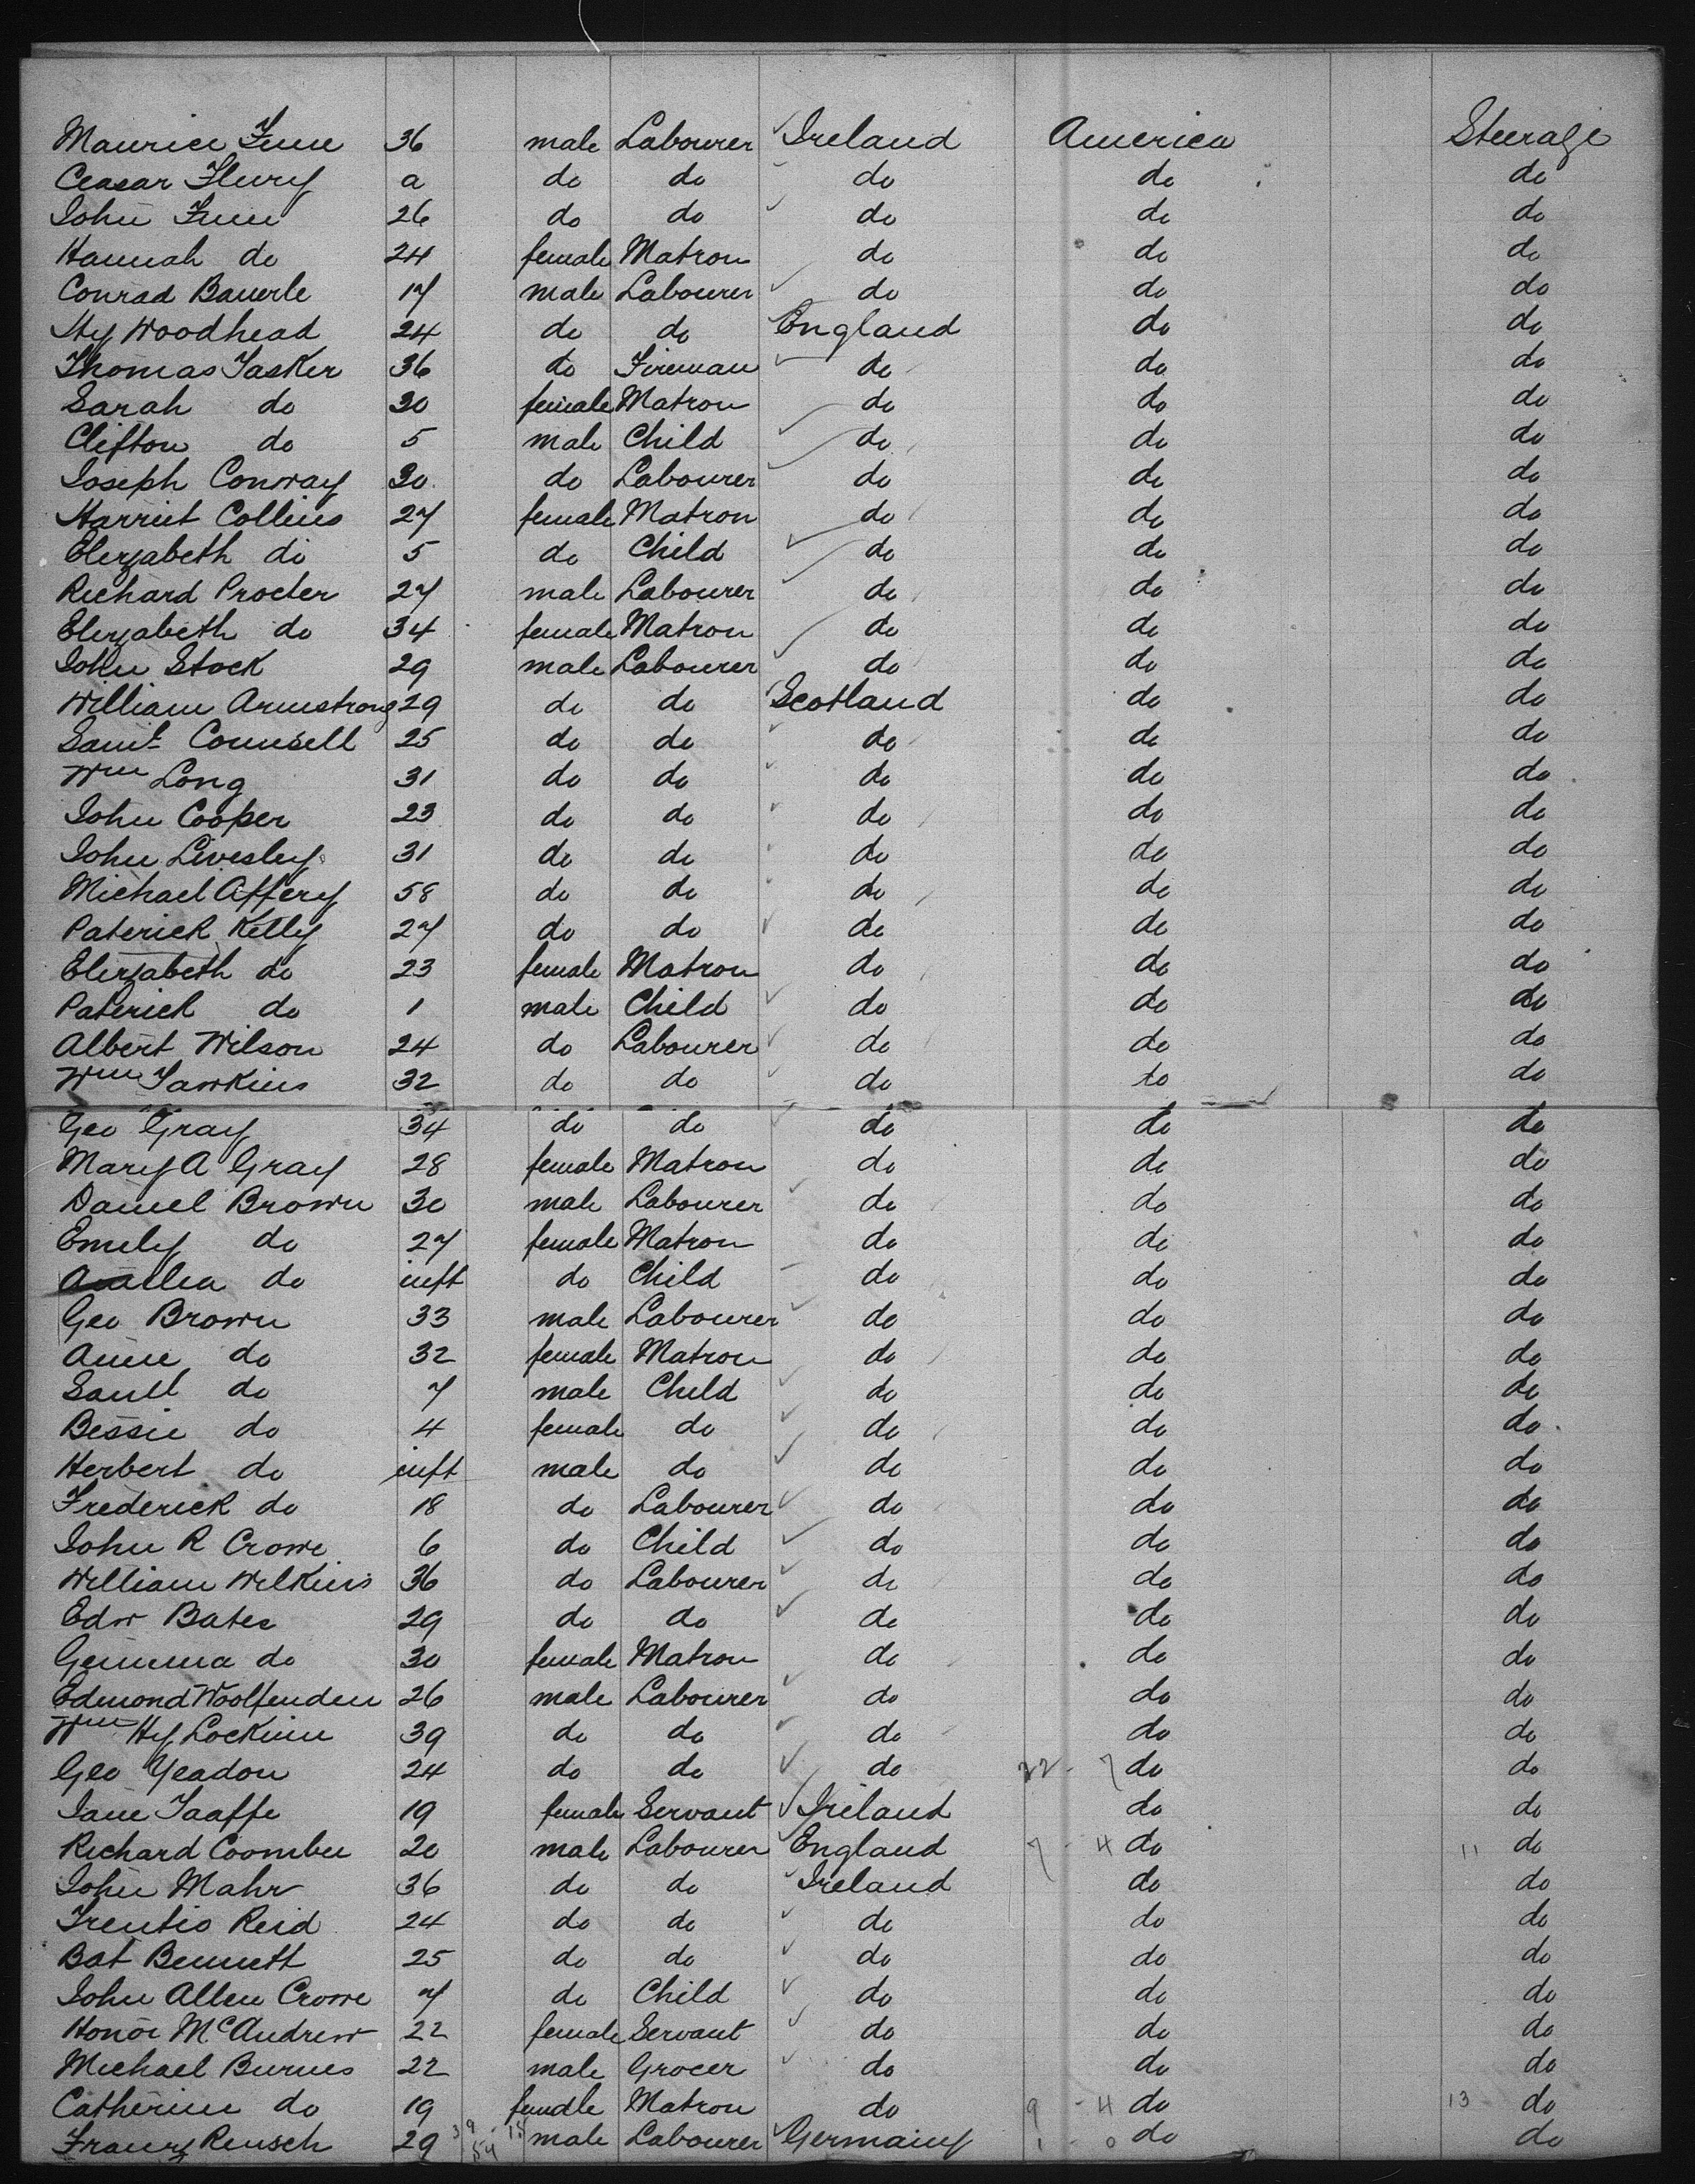 Maurice Fune 36 male Labourer Ireland America Steerage
Ceasar Flury a do do do do do
John Fune 26 do do do do do
Hannah do 24 female Matron do do do
Conrad Bauerle 17 male Labourer do do do
Hy Woodhead 24 do do England do do
Thomas Tasker 36 do Fireman do do do
Sarah do 30 female Matron do do do
Clifton do 5 male Child do do do
Joseph Conway 30 do Labourer do do do
Harriet Collins 27 female Matron do do do
Elizabeth do 5 do Child do do do
Richard Procter 27 male Labourer do do do
Elizabeth do 34 female Matron do do do
John Stock 29 male Labourer do do do
William Armstrong 29 do do Scotland do do
Saml Counsell 25 do do do do do
Wm Long 31 do do do do do
John Cooper 23 do do do do do
John Livesley 31 do do do do do
Michael Affery 58 do do do do do
Paterick Kelly 27 do do do do do
Elizabeth do 23 female Matron do do do
Paterick do 1 male Child do do do
Albert Wilson 24 do Labourer do do do
Wm Hawkins 32 do do do to do
Geo Gray 34 do do do do do
Mary A Gray 28 female Matron do do do
Daniel Brown 30 male Labourer do do do
Emily do 27 female Matron do do do
do inft do Child do do do
Geo Brown 33 male Labourer do do do
Anne do 32 female Matron do do do
Samll do 7 male Child do do do
Bessie do 4 female do do do do
Herbert do inft male do do do do
Frederick do 18 do Labourer do do do
John R Crowe 6 do Child do do do
William Wilkins 36 do Labourer do do do
Edw Bates 29 do do do do do
Gemima do 30 female Matron do do do
Edmond Woolfenden 26 male Labourer do do do
Wm Hy Lockine 39 do do do do do
Geo Yeadon 24 do do do 22 - 7 do do
Jane Taaffe 19 female Servant Ireland do do
Richard Coombe 20 male Labourer England 7 - 4 do 11 do
John Mahr 36 do do Ireland do do
Trentis Reid 24 do do do do do
Bat Bennett 25 do do do do do
John Allen Crowe 7 do Child do do do
Honor McAndrew 22 female Servant do do do
Michael Burnes 22 male Grocer do do do
Catherine do 19 female Matron do 9 - 4 do 13 do
Franz Reusch 29 39 - 15 54 male Labourer Germany 1 - 0 do do